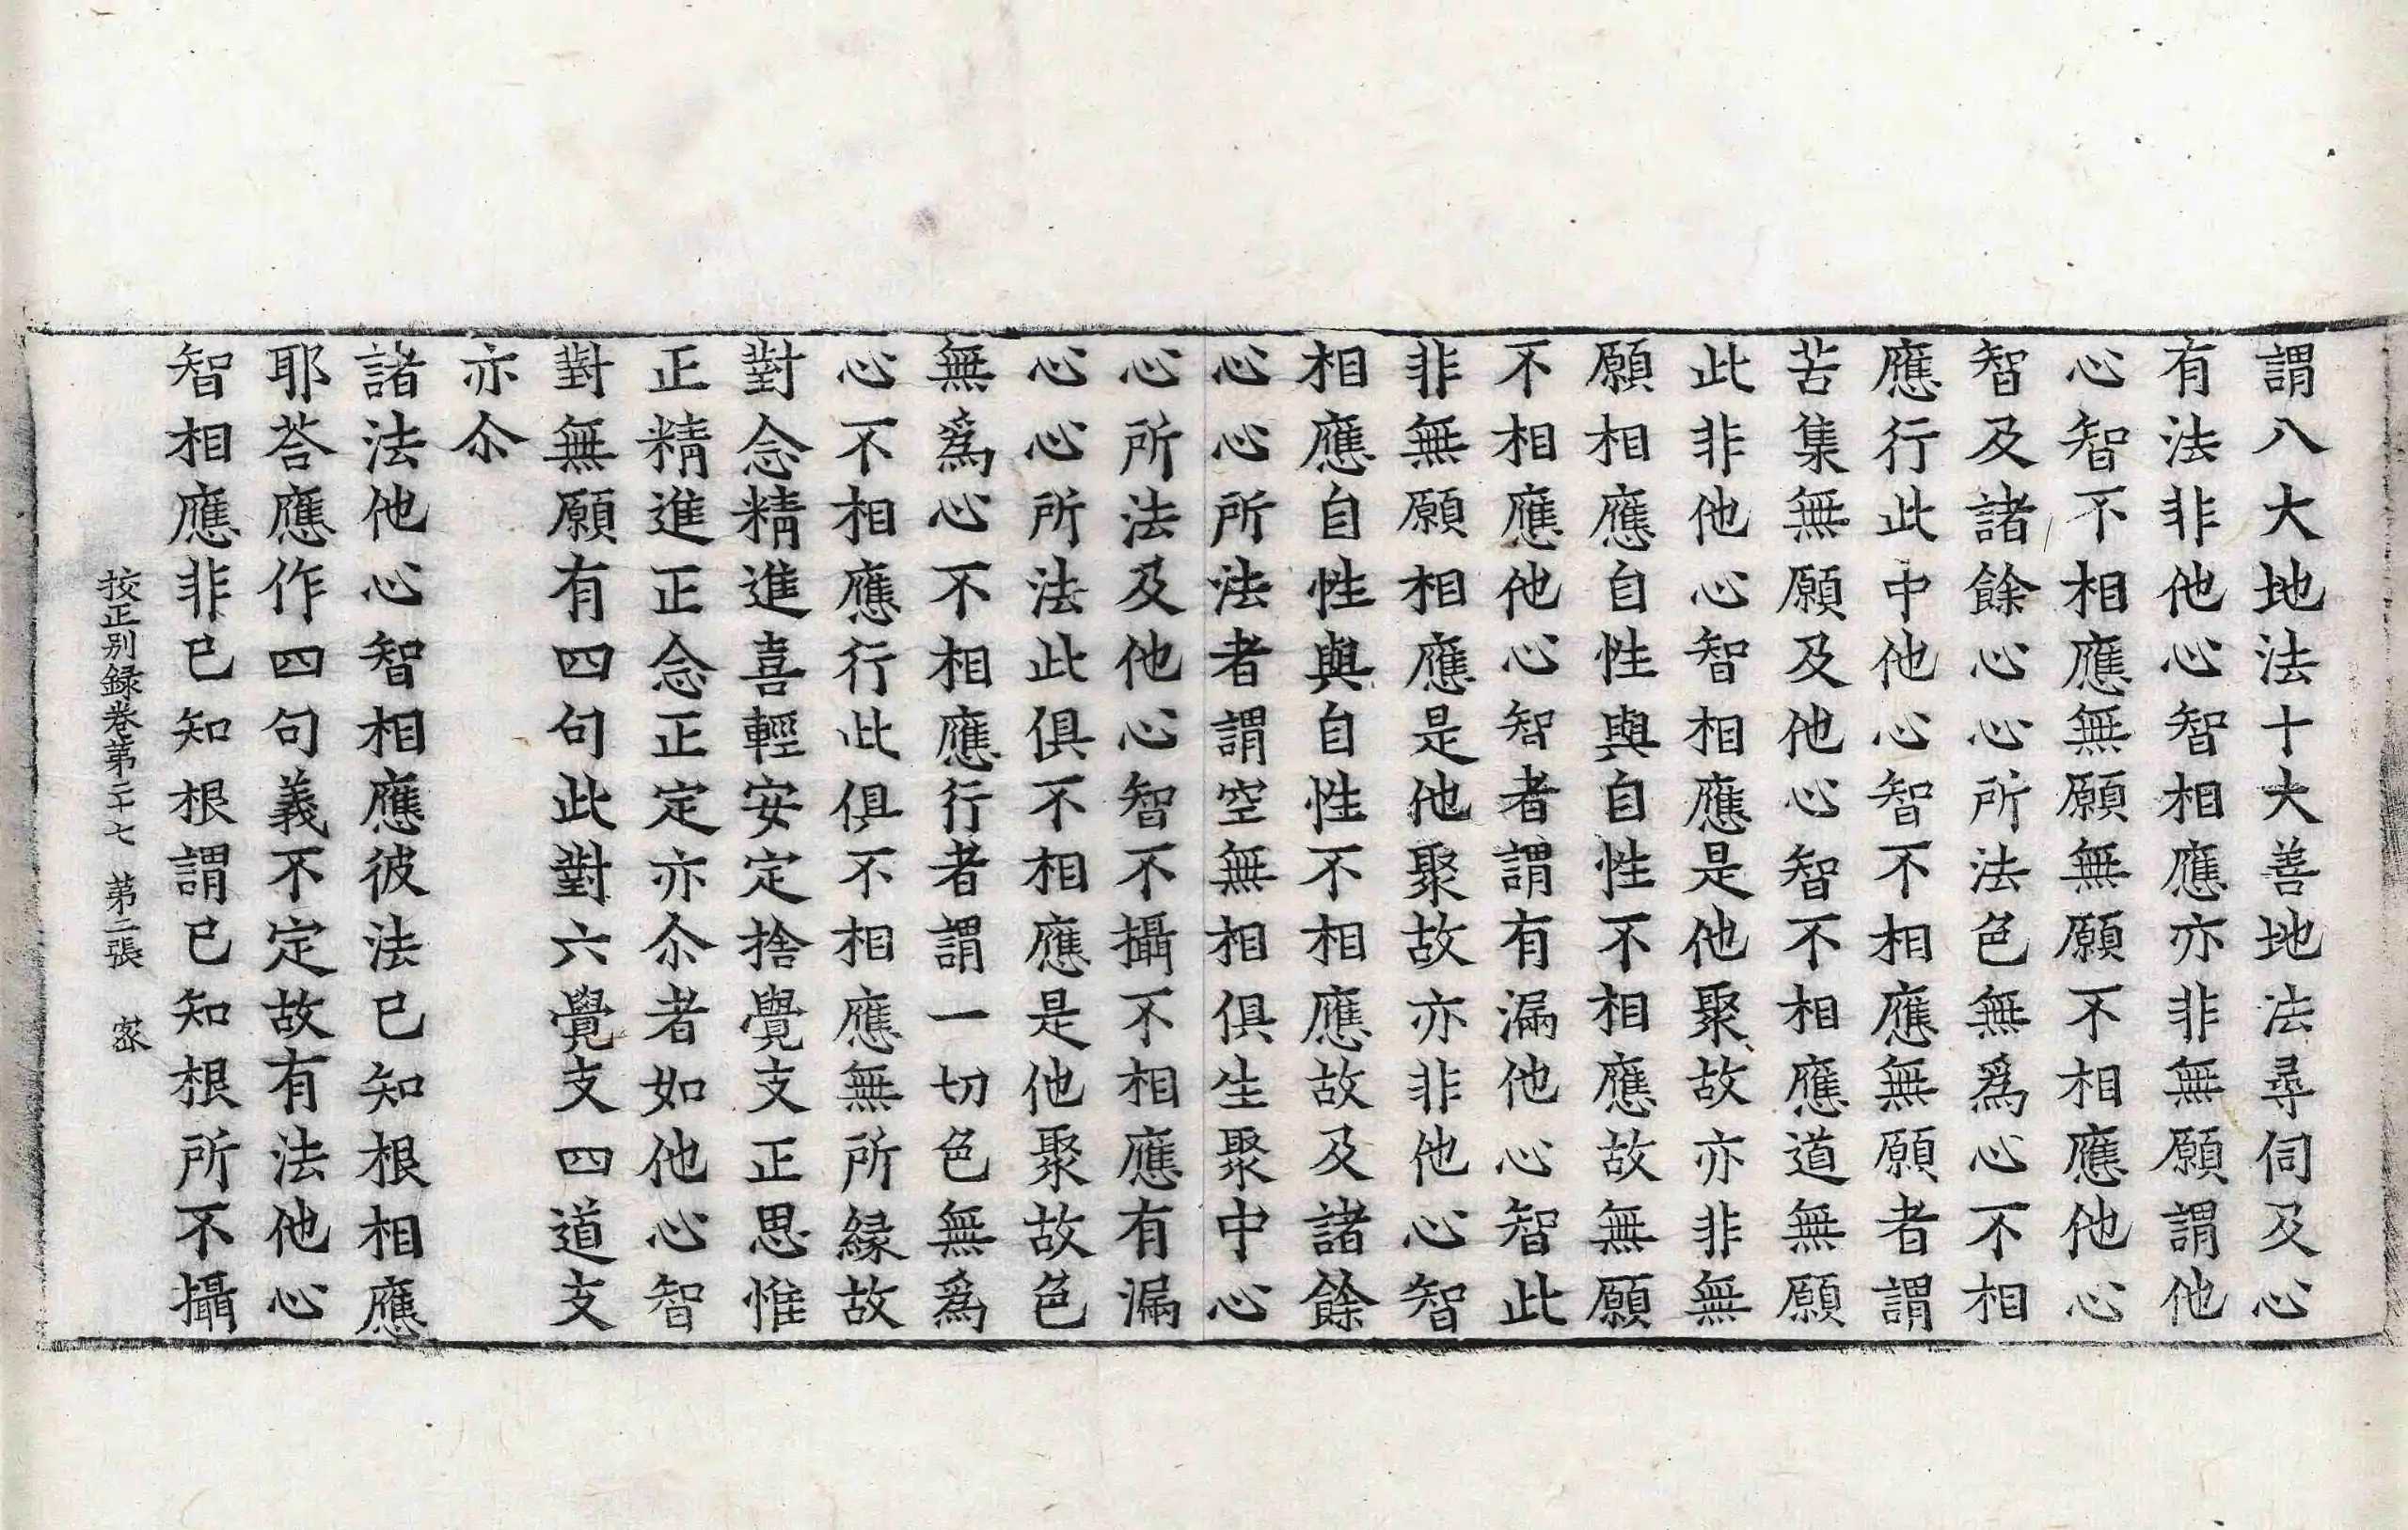 謂八大地法十大善地法尋伺及心
有法非他心智相應亦非無願謂他
心智不相應無願無願不相應他心
智及諸餘心心所法色無爲心不相
應行此中他心智不相應無願者謂
苦集無願及他心智不相應道無願
此非他心智相應是他聚故亦非無
願相應自性與自性不相應故無願
不相應他心智者謂有漏他心智此
非無願相應是他聚故亦非他心智
相應自性與自性不相應故及諸餘
心心所法者謂空無相俱生聚中心
心所法及他心智不攝不相應有漏
心心所法此俱不相應是他聚故色
無爲心不相應行者謂一切色無爲
心不相應行此俱不相應無所緣故
對念精進喜輕安定捨覺支正思惟
正精進正念正定亦尒者如他心智
對無願有四句此對六覺支四道支
亦尒
諸法他心智相應彼法已知根相應
耶荅應作四句義不定故有法他心
智相應非已知根謂已知根所不攝
挍正别録卷第二十七　第二張